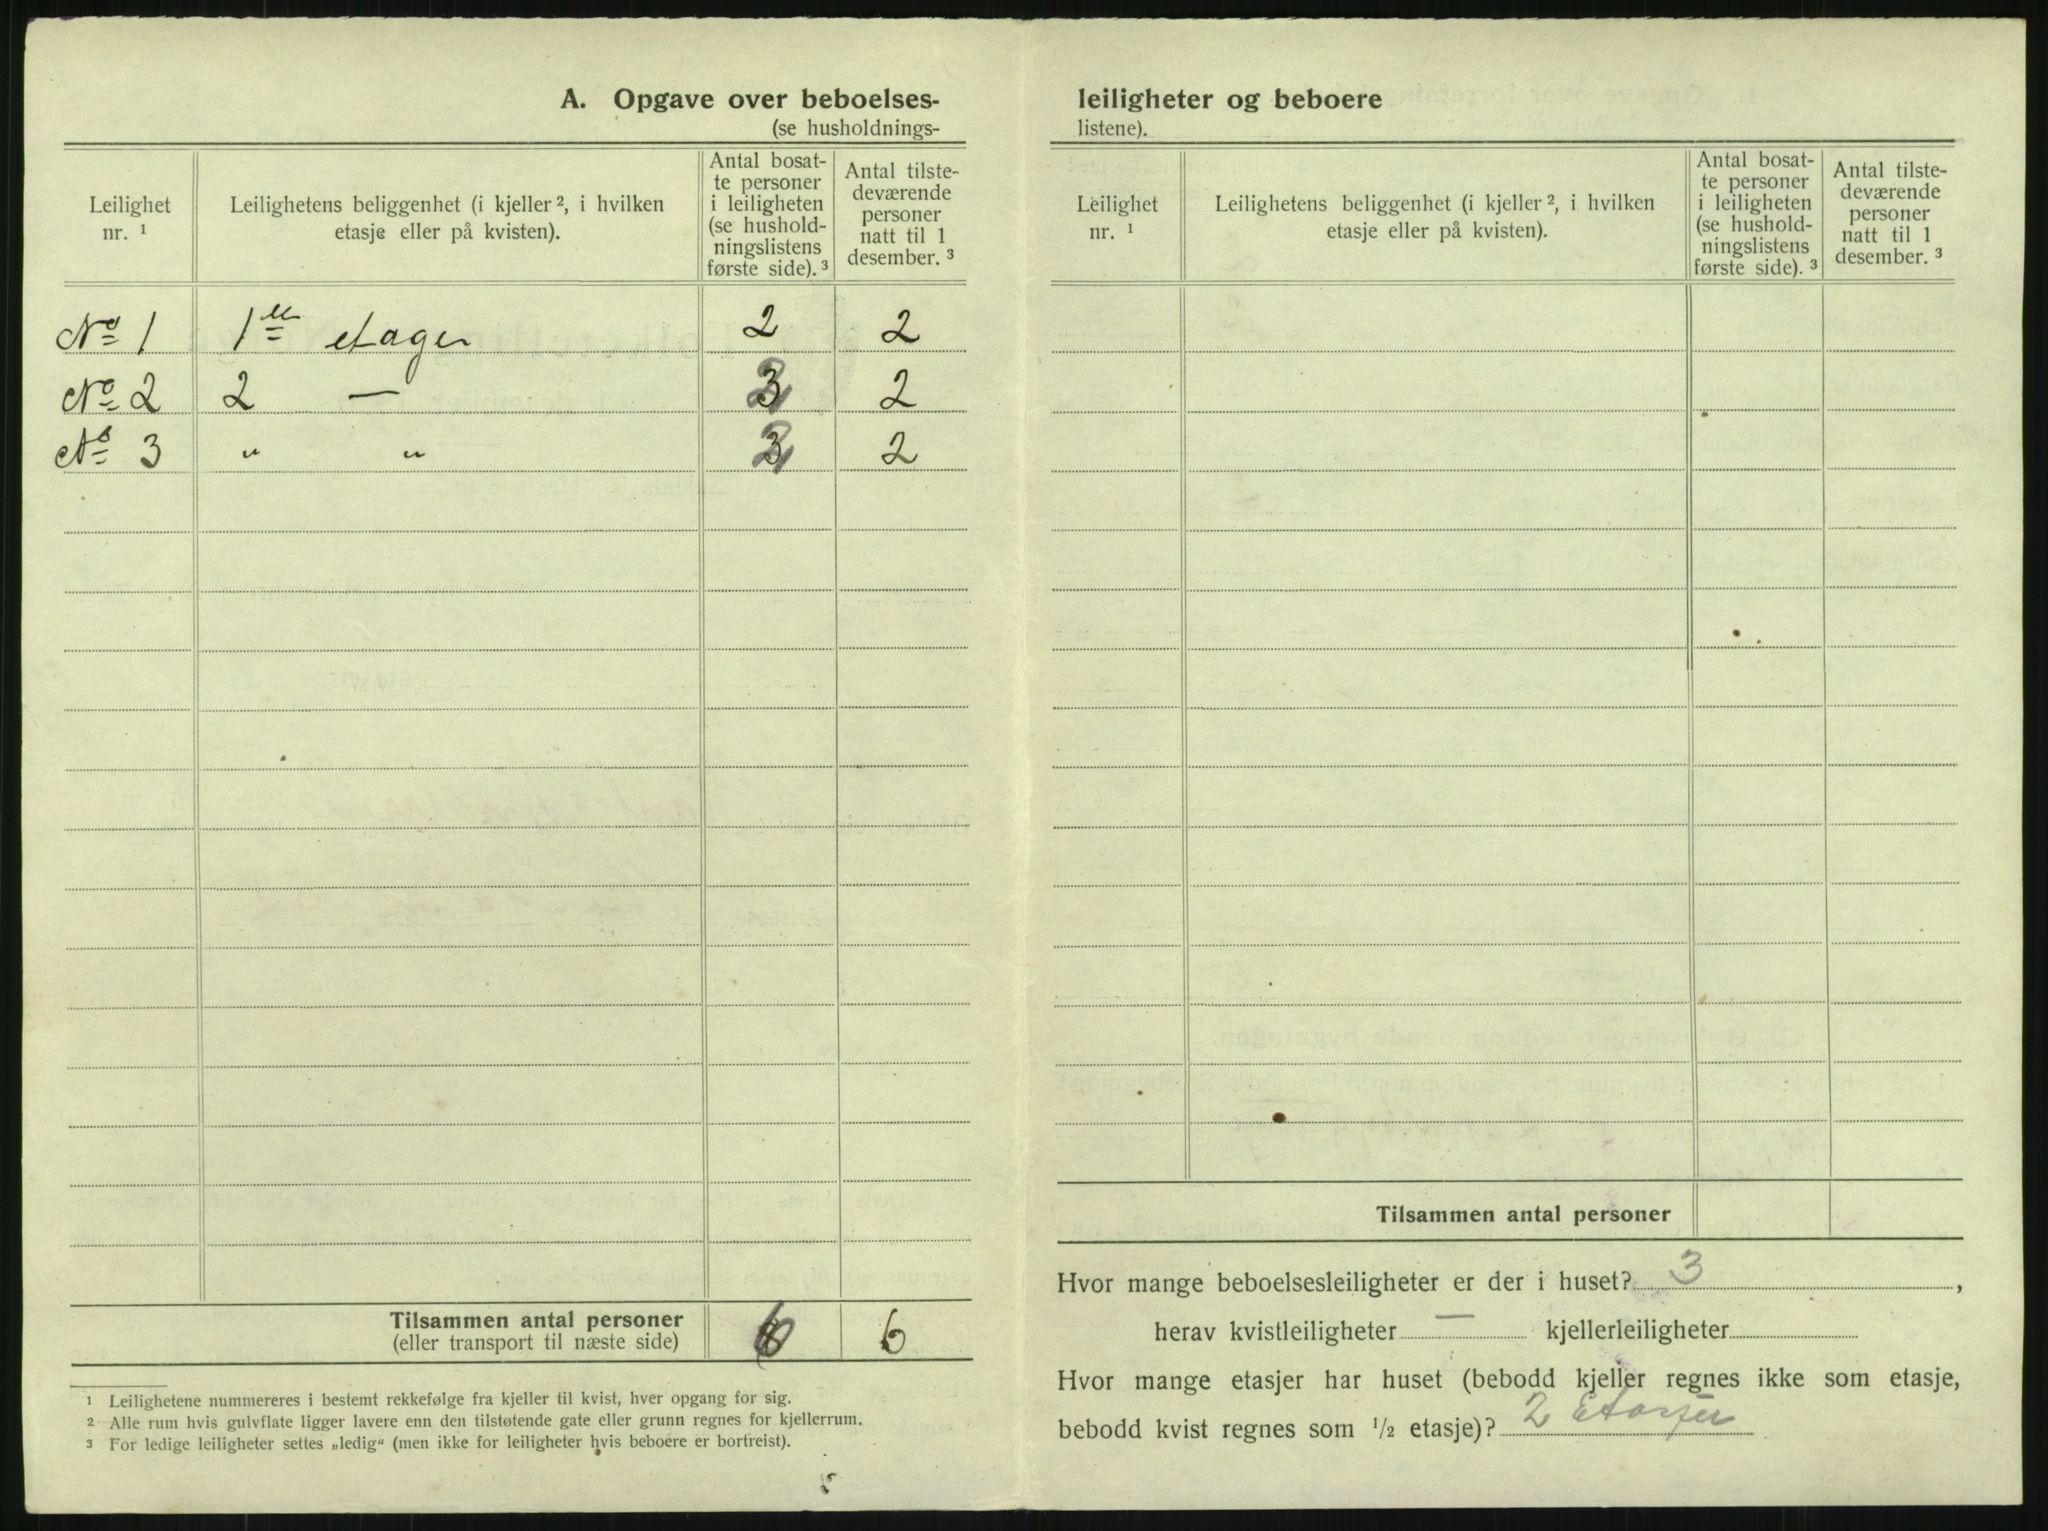 A. Opgave over beboelses-
(se husholdnings-
Leilighet
nr. ¹
Leilighetens beliggenhet (i kjeller ², i hvilken
etasje eller på kvisten).
Antal bosat-
te personer
i leiligheten
(se hushold-
ningslistens
første side). ³
Antal tilste-
deværende
personer
natt til 1
desember. ³
No 1 1ste etager 2 2
No 2 2 — 2
No 3 " " 2
Tilsammen antal personer
(eller transport til næste side) 6
¹ Leilighetene nummereres i bestemt rekkefølge fra kjeller til kvist, hver opgang for sig.
² Alle rum hvis gulvflate ligger lavere enn den tilstøtende gate eller grunn regnes for kjellerrum.
³ For ledige leiligheter settes „ledig“ (men ikke for leiligheter hvis beboere er bortreist).
leiligheter og beboere
listene).
Leilighet
nr. ¹
Leilighetens beliggenhet (i kjeller ², i hvilken
etasje eller på kvisten).
Antal bosat-
te personer
i leiligheten
(se hushold-
ningslistens
første side). ³
Antal tilste-
deværende
personer
natt til 1
desember. ³
Tilsammen antal personer
Hvor mange beboelsesleiligheter er der i huset? 3 ,
herav kvistleiligheter — kjellerleiligheter
Hvor mange etasjer har huset (bebodd kjeller regnes ikke som etasje,
bebodd kvist regnes som ½ etasje)? 2 Etasjer